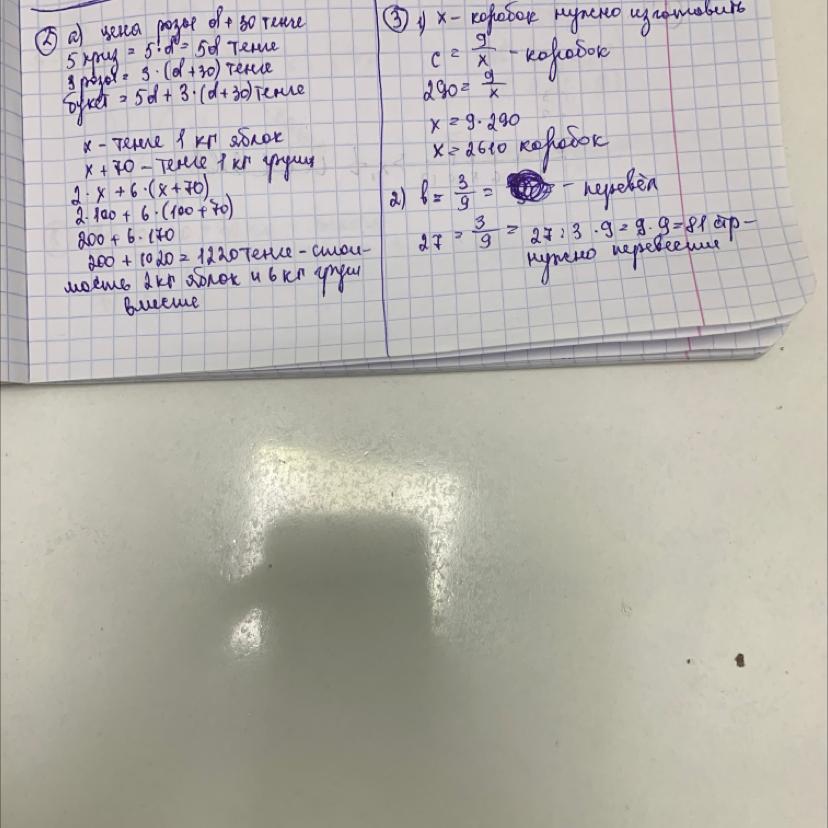 2 а) цена розы d + 30 тенге
5 хриз = 5·d = 5d тенге
3 розы = 3·(d+30) тенге
букет = 5d + 3·(d+30) тенге
x – тенге 1 кг яблок
x + 70 – тенге 1 кг груш
2·x + 6·(x+70)
2·100 + 6·(100+70)
200 + 6·170
200 + 1020 = 1220 тенге – стои-
мость 2 кг яблок и 6 кг груш
вместе
3 1) x – коробок нужно изготовить
c = 9/x – коробок
290 = 9/x
x = 9·290
x = 2610 коробок
2) b = 3/9 = – перевёл
27 = 3/9 = 27:3·9 = 9·9 = 81 стр –
нужно перевести